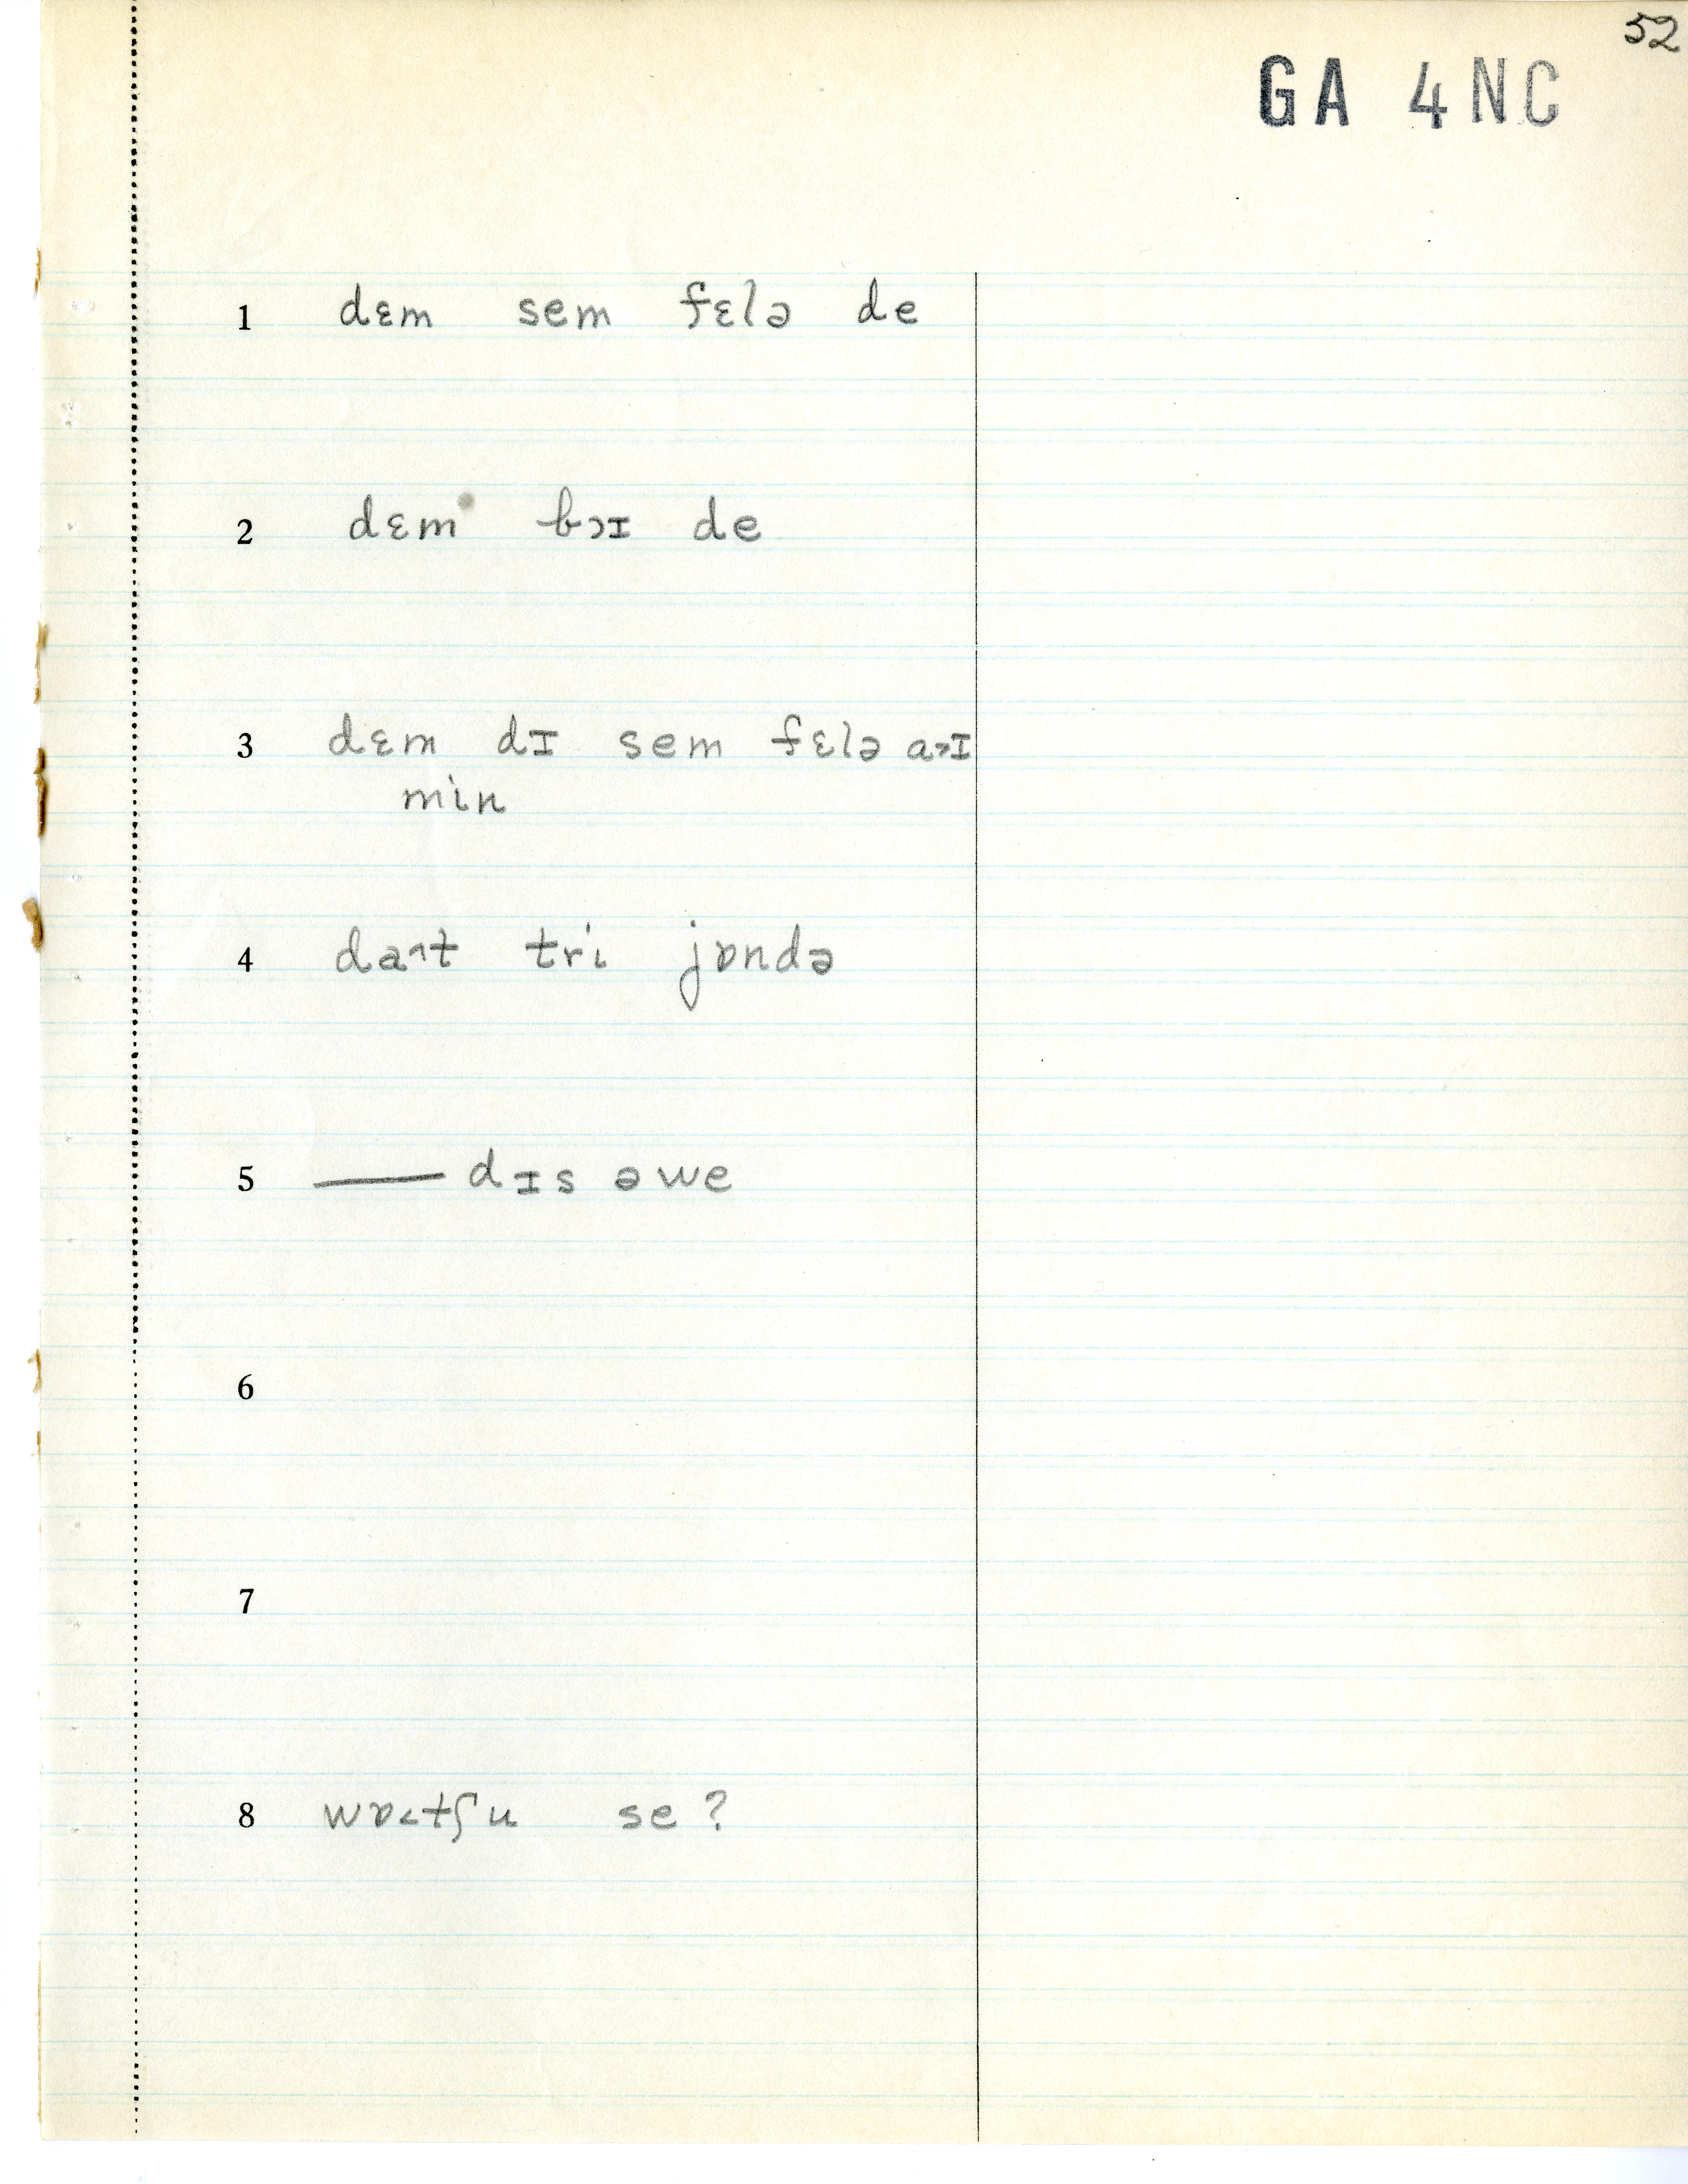 52
GA 4 NC
1 dɛm sem fɛlə de
2 dɛm bɔɪ de
3 dɛm dɪ sem fɛlə a˃ɪ
min
4 da˄t tri jɒndə
5 —— dɪs əwe
6
7
8 wɒ˂tʃu se ?